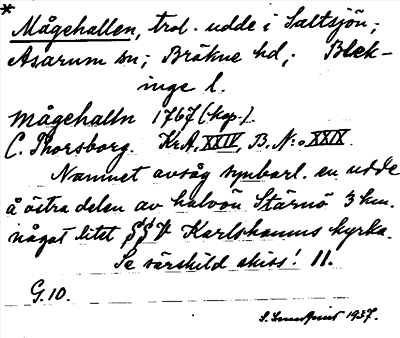 * Mågehallen, trol. udde i Saltsjön;
Asarum sn; Bräkne hd; Blek-
inge l.
Mågehalln 1767 (kop.).
C. Thorsborg. Kr.A. XXIV. B. No. XXIX.
Namnet avsåg synbarl. en udde
å östra delen av halvön Stärnö 3 km.
något litet Karlshamns kyrka.
Se särskild skiss! 11.
G.10.
1937.